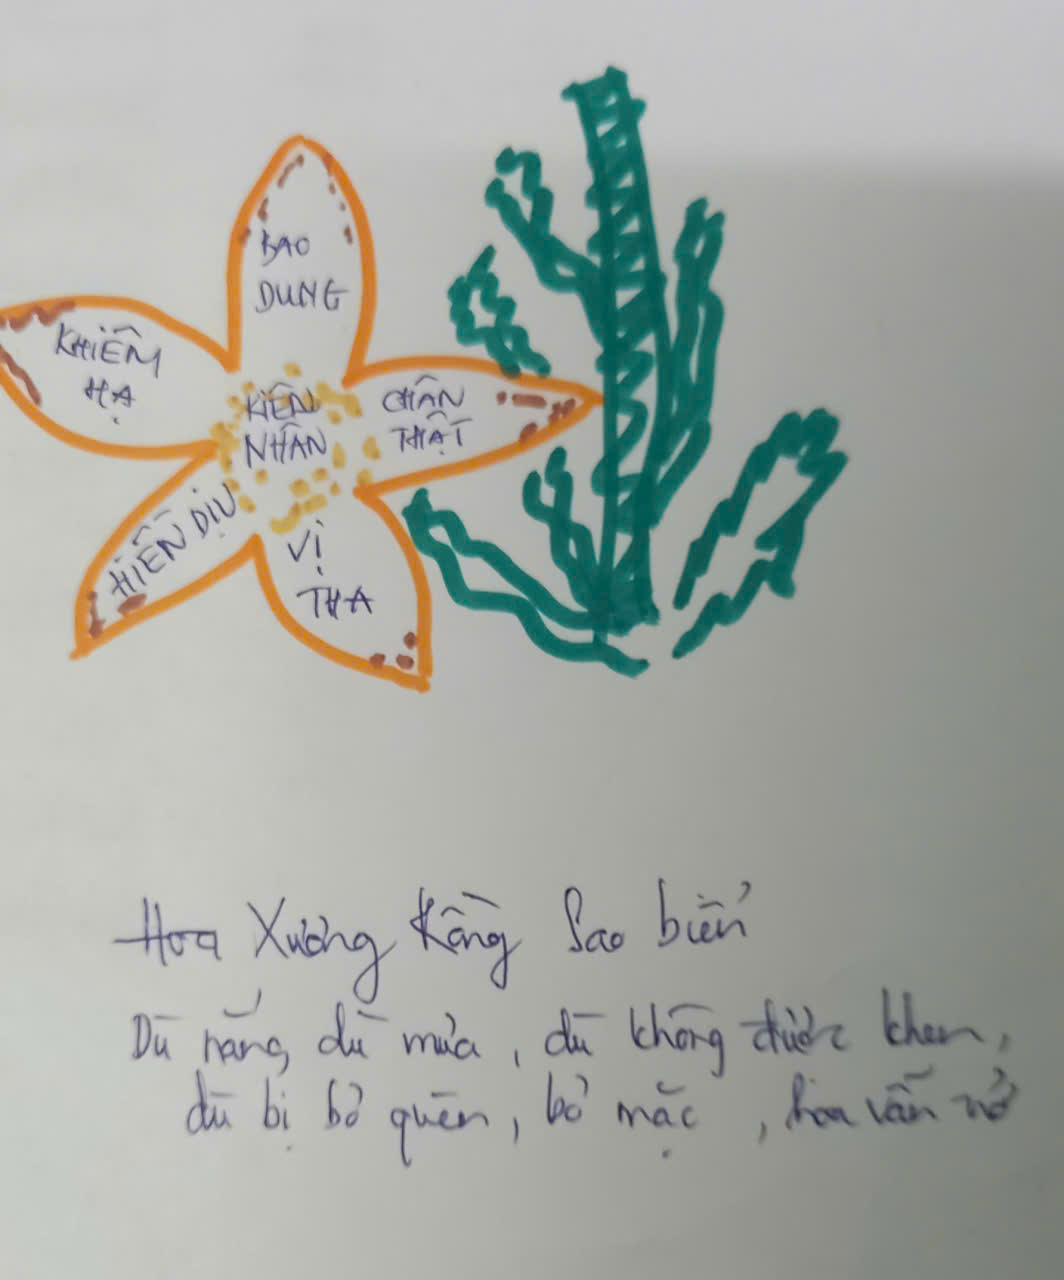 BAO
DUNG
KHIÊM
HẠ
KIÊN
NHẪN
CHÂN
THẬT
HIỀN DỊU
VỊ
THA
Hoa Xương Rồng Sao biển
Dù nắng dù mưa, dù không được khen,
dù bị bỏ quên, bỏ mặc, hoa vẫn nở